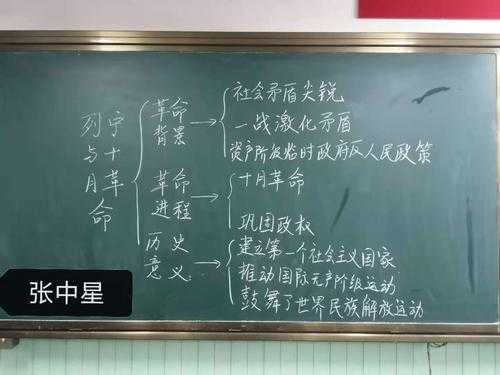 列宁与十月革命
革命背景
社会矛盾尖锐
一战激化矛盾
资产阶级临时政府反人民政策
革命进程
十月革命
巩固政权
历史意义
建立第一个社会主义国家
推动国际无产阶级运动
鼓舞了世界民族解放运动
张中星